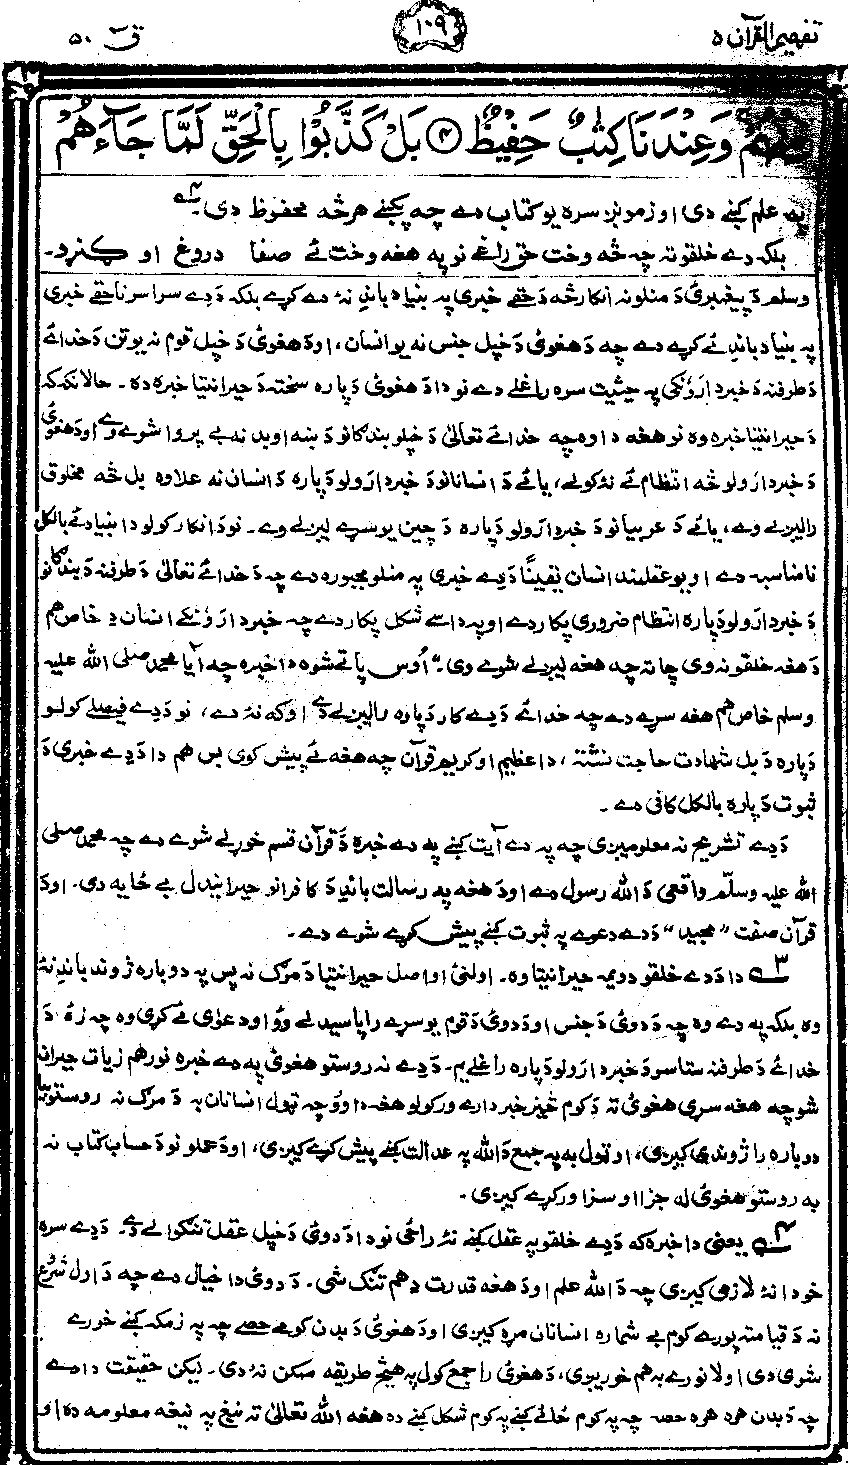 تفهیم القرآن ۵
۱۰۹
ق ۵۰
وَعِنْدَنَا كِتٰبٌ حَفِيْظٌ ۴ بَلْ كَذَّبُوْا بِالْحَقِّ لَمَّا جَآءَهُمْ
په علم کښے دی او زمونږ سره یو کتاب دے چه پکښے هر څه محفوظ دی۔ ۴
بلکه دے خلقو ته چه څه وخت حق راغے نو په هغه وخت ئے صفا دروغ او ګنړد۔
وسلم دَ پیغمبرئ دَ منلو نه انکار څه دَ حقے خبری په بنیاد باندِ نهٔ دے کړے بلکه دَ دے سراسر ناحقے خبری
په بنیاد باندِ ئے کړے دے چه دَ هغوئ دَ خپل جنس نه یو انسان، او دَ هغوئ دَ خپل قوم نه یو تن دَ خدائے
دَ طرفنه دَ خبردارَوُنکی په حیثیت سره راغلے دے نو دا دَ هغوئ دَپاره سخته دَ حیرانتیا خبره ده۔ حالانکه که
دَ حیرانتیا خبره وه نو هغه دا وه چه خدائے تعالیٰ دَ خپلو بندګانو دَ ښه او بد نه بے پروا شوے وے او دَ هغوئ
دَ خبردارولو څه انتظام ئے نهٔ کولے، یا ئے دَ انسانانو دَ خبردارولو دَپاره دَ انسان نه علاوه بل څه مخلوق
رالیږلے وے، یا ئے دَ عربیانو دَ خبردارولو دَپاره دَ چین یو سرے لیږلے وے۔ نو دَ انکار کولو دا بنیاد ئے بالکل
نامناسبه دے او یو عقلمند انسان یقیناً دَ دے خبری په منلو مجبوره دے چه دَ خدائے تعالیٰ دَ طرفنه دَ بندګانو
دَ خبردارولو دَپاره انتظام ضروری پکار دے او په داسے شکل پکار دے چه خبردارَوُنکے انسان دِ خاص هم
دَ هغه خلقو نه وی چا ته چه هغه لیږلے شوے وی۔ اُوس پاتے شوه دا خبره چه آیا محمد صلی الله علیه
وسلم خاص هم هغه سرے دے چه خدائے دَ دے کار دَپاره رالیږلے دے او که نهٔ دے، نو دَ دے فیصلے کولو
دَپاره دَ بل شهادت حاجت نشته، دا عظیم او کریم قرآن چه هغه ئے پیش کوی بس هم دا دَ دے خبری دَ
ثبوت دَپاره بالکل کافی دے۔
دَ دے تشریح نه معلومیږی چه په دے آیت کښے په دے خبره دَ قرآن قسم خوړلے شوے دے چه محمد صلی
الله علیه وسلّم واقعی دَ الله رسول دے او دَ هغه په رسالت باندِ دَ کافرانو حیرانیدل بے ځایه دی۔ او دَ
قرآن صفت "مجید" دَ دے دعوے په ثبوت کښے پیش کړے شوے دے۔
۳ دا دَ دے خلقو دویمه حیرانتیا وه۔ اولنئ او اصل حیرانتیا دَ مرګ نه پس په دوباره ژوند باندِ نهٔ
وه بلکه په دے وه چه دَ دوئ دَ جنس او دَ دوئ دَ قوم یو سرے راپاسیدلے وو او دعوٰی ئے کړی وه چه زهٔ، دَ
خدائے دَ طرفنه ستاسو دَ خبردارولو دَپاره راغلے یم۔ دَ دے نه روستو هغوئ په دے خبره نور هم زیات حیرانه
شو چه هغه سړی هغوئ ته دَ کوم څیز خبردارے ورکولو هغه دا وو چه ټول انسانان به دَ مرګ نه روستو بیا
دوباره را ژوندی کیږی، او ټول به په جمع دَ الله په عدالت کښے پیش کړے کیږی، او دَ عملونو دَ حساب کتاب نه
به روستو هغوئ له جزا او سزا ورکړے کیږی۔
۴ یعنی دا خبره که دَ دے خلقو په عقل کښے نهٔ راځی نو دا دَ دوئ دَ خپل عقل تنګوالے دے۔ دَ دے سره
خو دا نهٔ لازمی کیږی چه دَ الله علم او دَ هغه قدرت دِ هم تنګ شی۔ دَ دوئ دا خیال دے چه دَ اول شرُع
نه دَ قیامته پورے کوم بے شماره انسانان مړه کیږی او دَ هغوئ دَ بدن کومے حصے چه په زمکه کښے خورے
شوی دی او لا نورے به هم خوریږی، دَ هغوئ راجمع کول په هیڅ طریقه ممکن نهٔ دی۔ لیکن حقیقت دا دے
چه دَ بدن هره هره حصه چه په کوم ځائے کښے په کوم شکل کښے ده هغه الله تعالیٰ ته نیغ په نیغه معلومه ده او